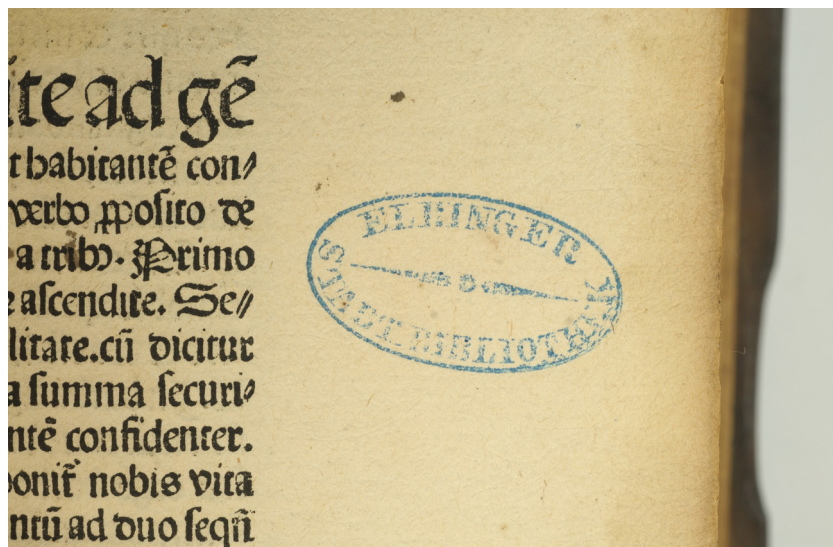 ite ad gē
t habitantē con⸗
verbo ꝓposito de
a tribꝰ. Primo
ascendite. Se⸗
litate. cū dicitur
a summa securi⸗
ntē confidenter.
ponit̄ nobis vita
ntū ad duo seqn̄
ELBINGER
STADT. BIBLIOTHEK